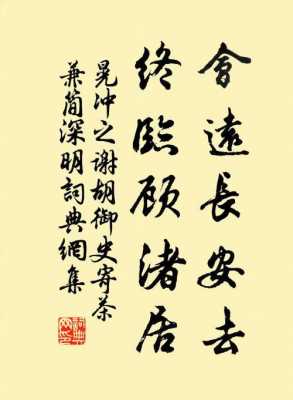 會遠長安去
終臨顾渚居
晁沖之谢胡御史寄茶
兼简深明詞典網集